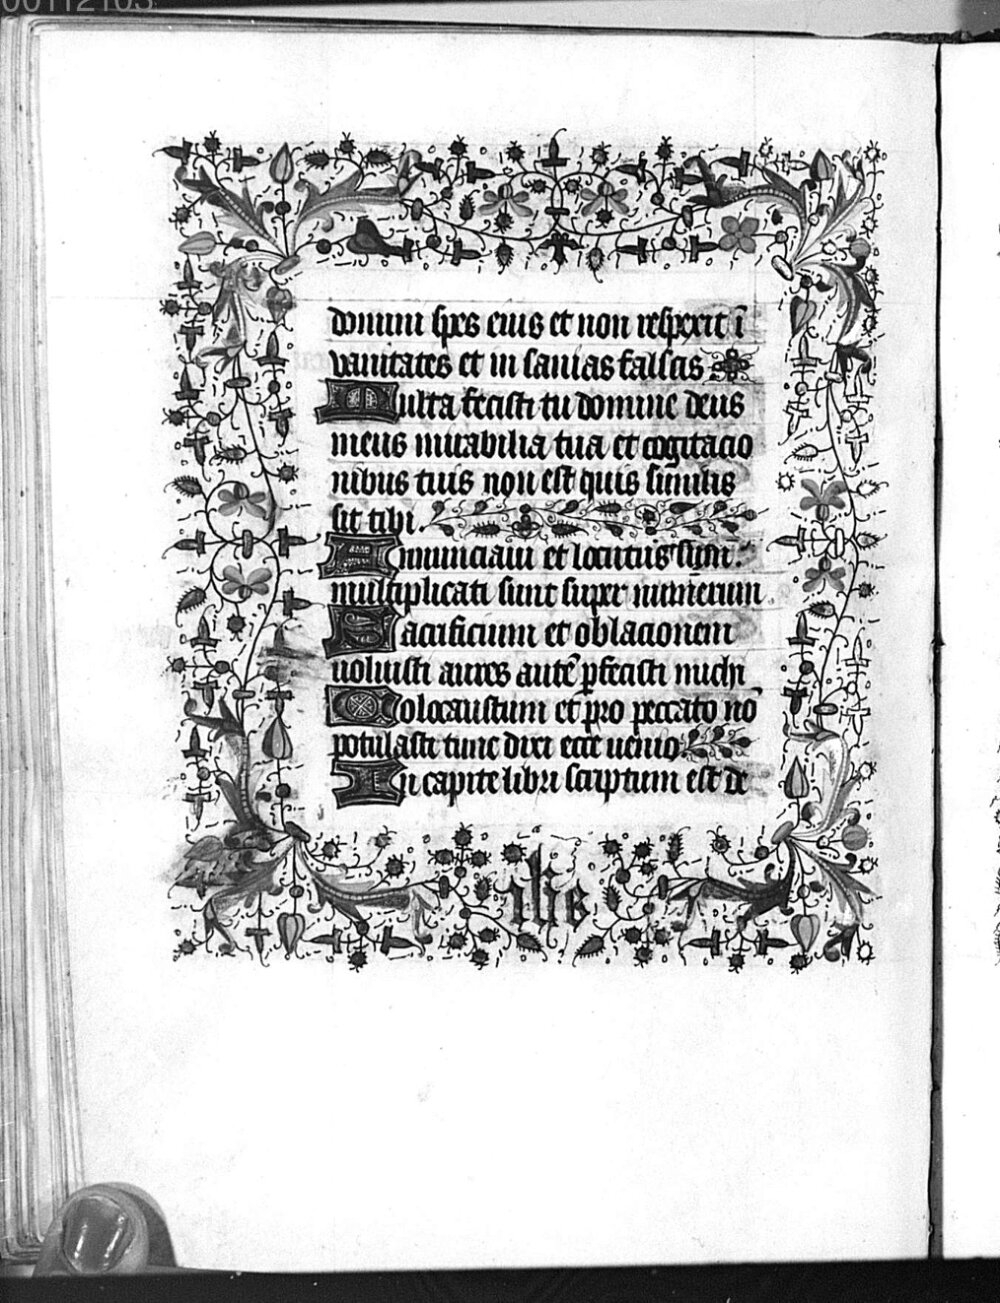 00112103
domini spes eius et non respexit ī
vanitates et in sanias falscis
Multa fecisti tu domine deus
meus mirabilia tua et cogitacio
nibus tuis non est quis similis
sit tibi
Annunciaui et locutus sum :
multiplicati sunt super numerum .
Sacrificium et oblacionem
uoluisti aures autē pfecisti michi
Holocaustum et pro peccato nō
potulasti tunc dixi ecce uenio
In capite libri scriptum est de
ihs